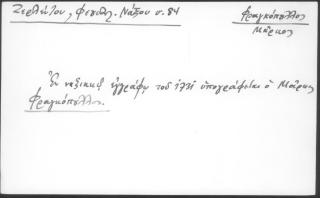 Ζερλέντου, Φεουδ. Νάξου σ. 84
Φραγκόπουλλος
Μάρκος
Ἐν ναξιακῷ ἐγγράφῳ τοῦ ὑπογράφεται ὁ Μάρκος
Φραγκόπουλλος.